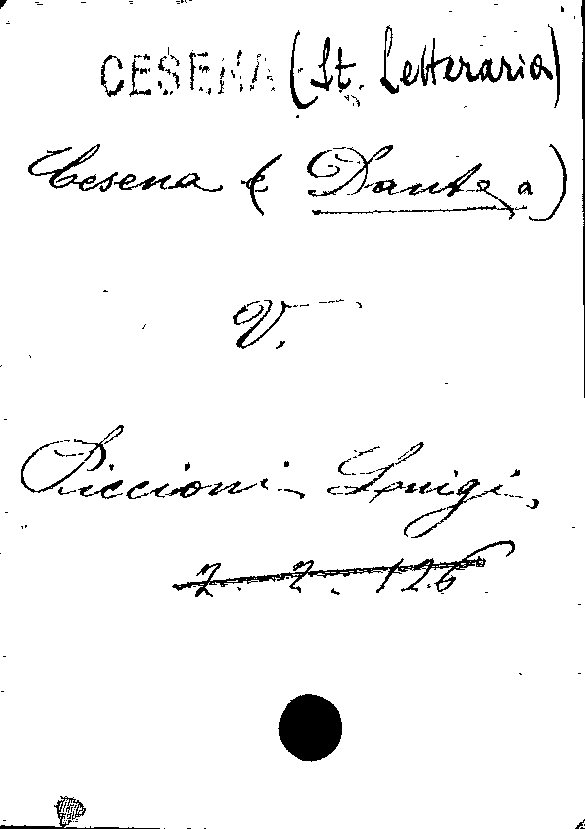 CESENA (St. Letteraria)
Cesena ( Dante a )
V.
Piccioni Luigi
7. 2. 126